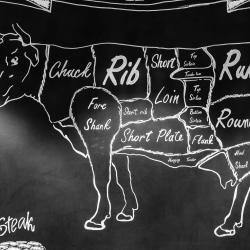 Chuck
Rib
Short
Loin
Top
Sirloin
Tender loin
Top
Sirloin
Bottom
Sirloin
Ru
Round
Fore
Shank
Short rib
Short Plate
Flank
Hind
Shank
Steak